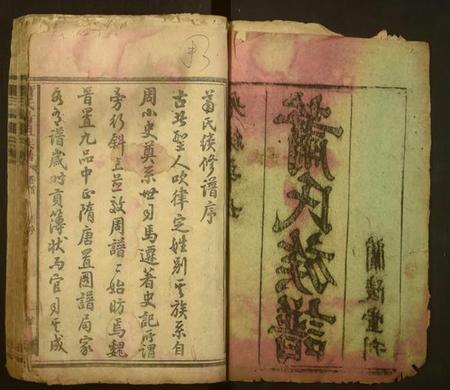 蕭氏族譜
蘭陵堂刊
蕭氏續修譜序
古者聖人吹律定姓別其族系自
周小史奠系世司馬遷著史記所謂
旁行斜上並效周譜〻始昉焉魏
晉置九品中正隋唐置圖譜局家
各有譜歲時貢簿狀而官司其成